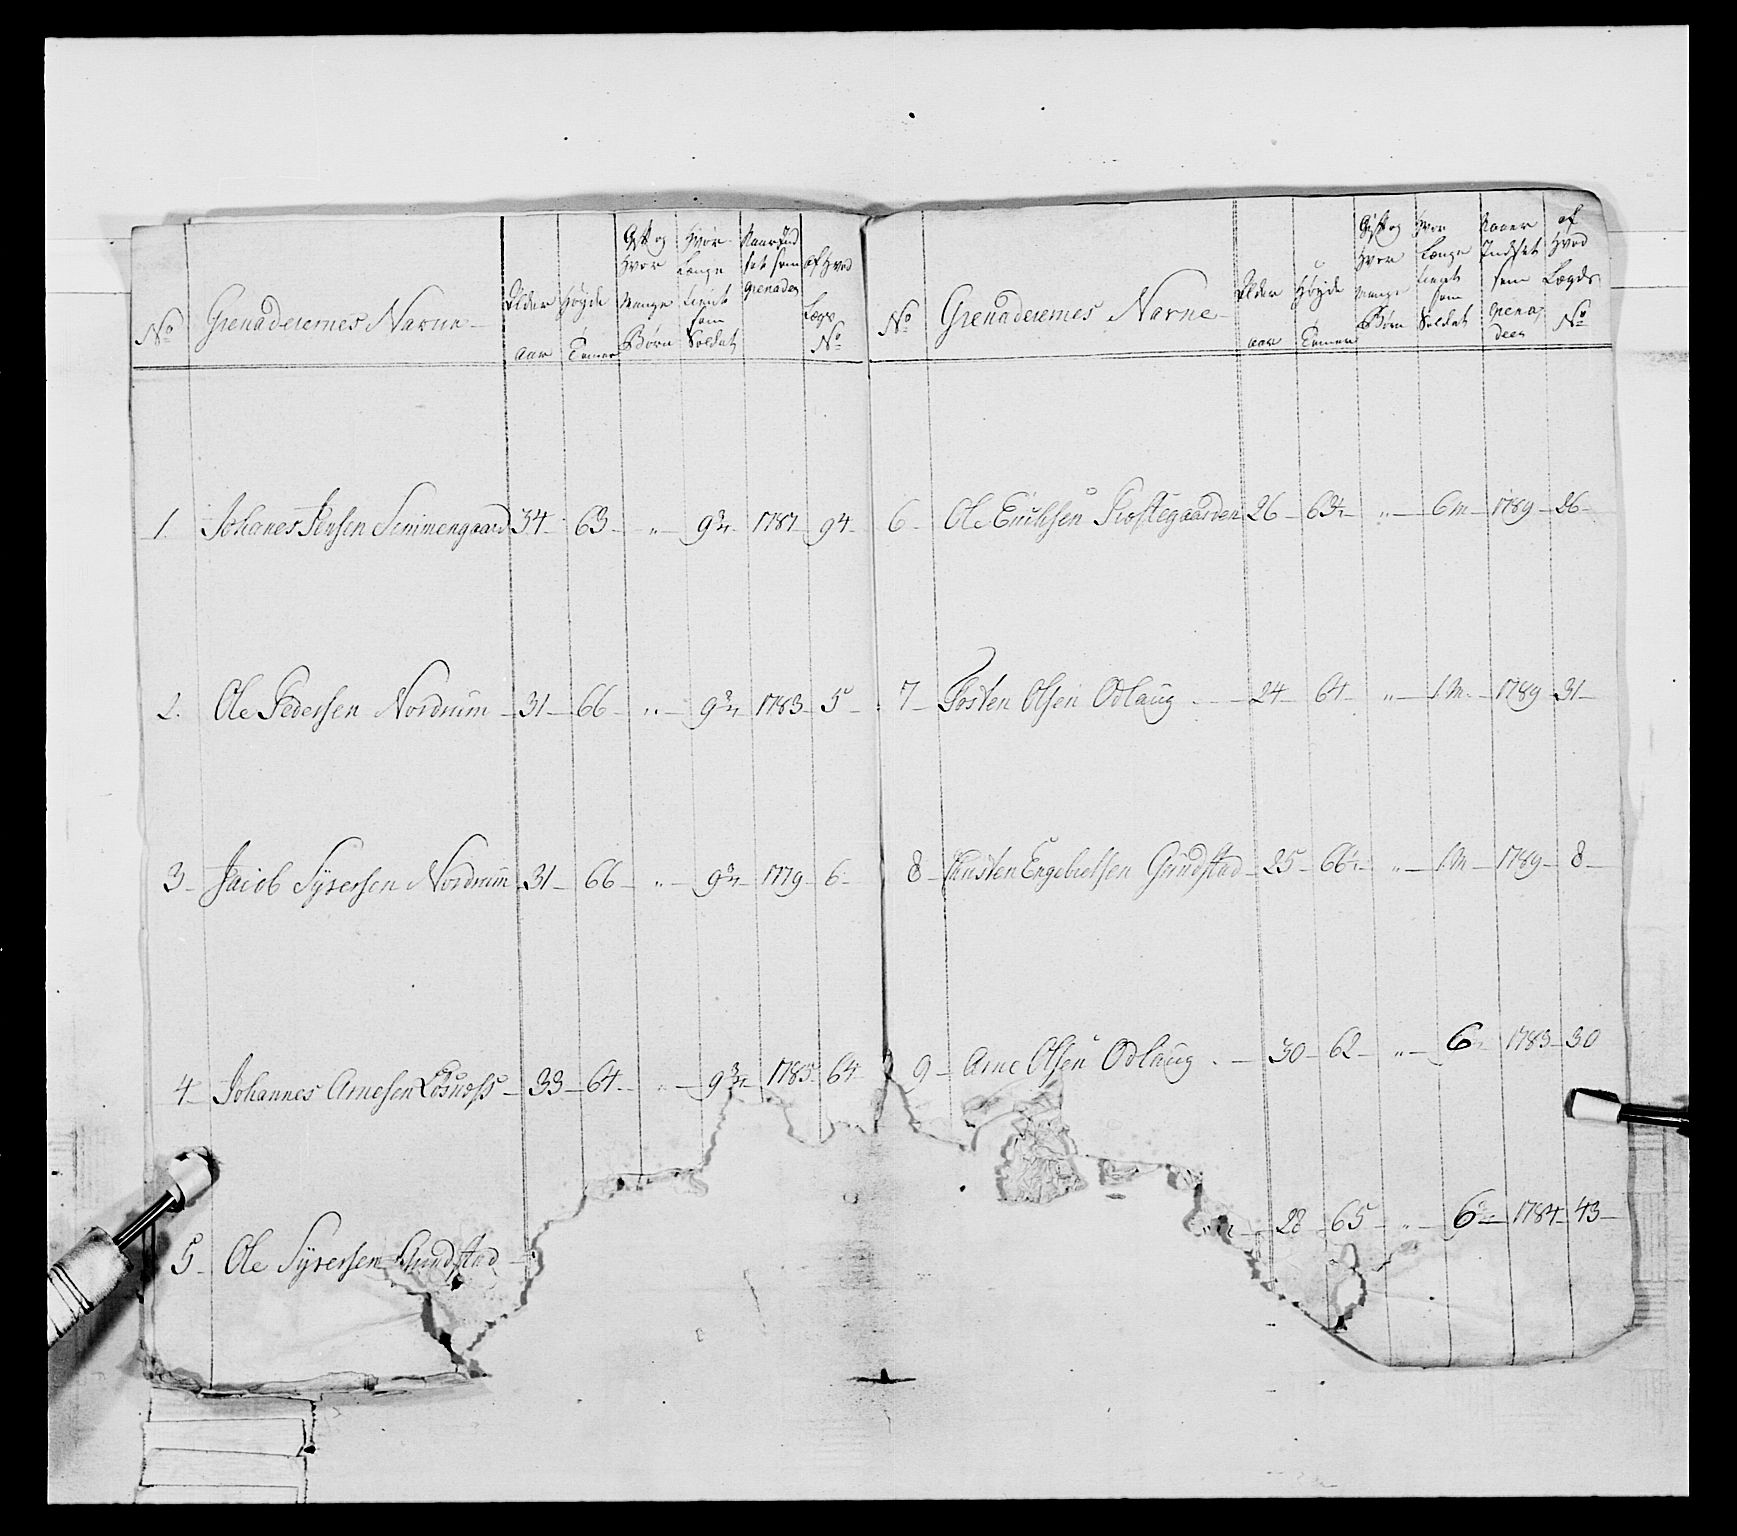 No Grenaderernes Navne Alder Aar Høyde Tomer Gift og Hvor Mange Børn Hvor Længe tient som Soldat Naar ind sat som Grenader af Hvad Lægs No
1. Johanes Jensen Simmengaard 34 63 " 9 3/4 1787 94
2. Ole Pedersen Nordrum 31 66 " 9 3/4 1783 5
3 Jacob Syversen Nordrum 31 66 " 9 3/4 1779 6
4 Johannes Arnesen 33 64 " 9 3/4 1785 64
5 Ole Syversen Grindstad
No Grenaderernes Navne Alder Aar Høyde Tomer Gift og Hvor Mange Børn Hvor Længe tient som Soldat Naar Indsat som Grenadeer af Hvad Lægds No
6 Ole Erichsen Prostegaarden 26 63 1/2 " 6 M 1789 26
7 Tosten Olsen Odlaug 24 64 " 1 M 1789 31
8 Christen Engebretsen Grindstad 25 66 1/2 " 1 M 1789 8
9 Arne Olsen Odlaug 30 62 " 6 1783 30
28 65 " 6 1784 43